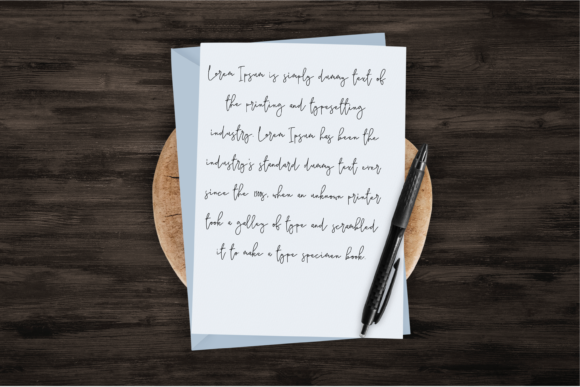 Lorem Ipsum is simply dummy text of
the printing and typesetting
industry. Lorem Ipsum has been the
industry's standard dummy text ever
since the 1500s, when an unknown printer
took a galley of type and scrambled
it to make a type specimen book.